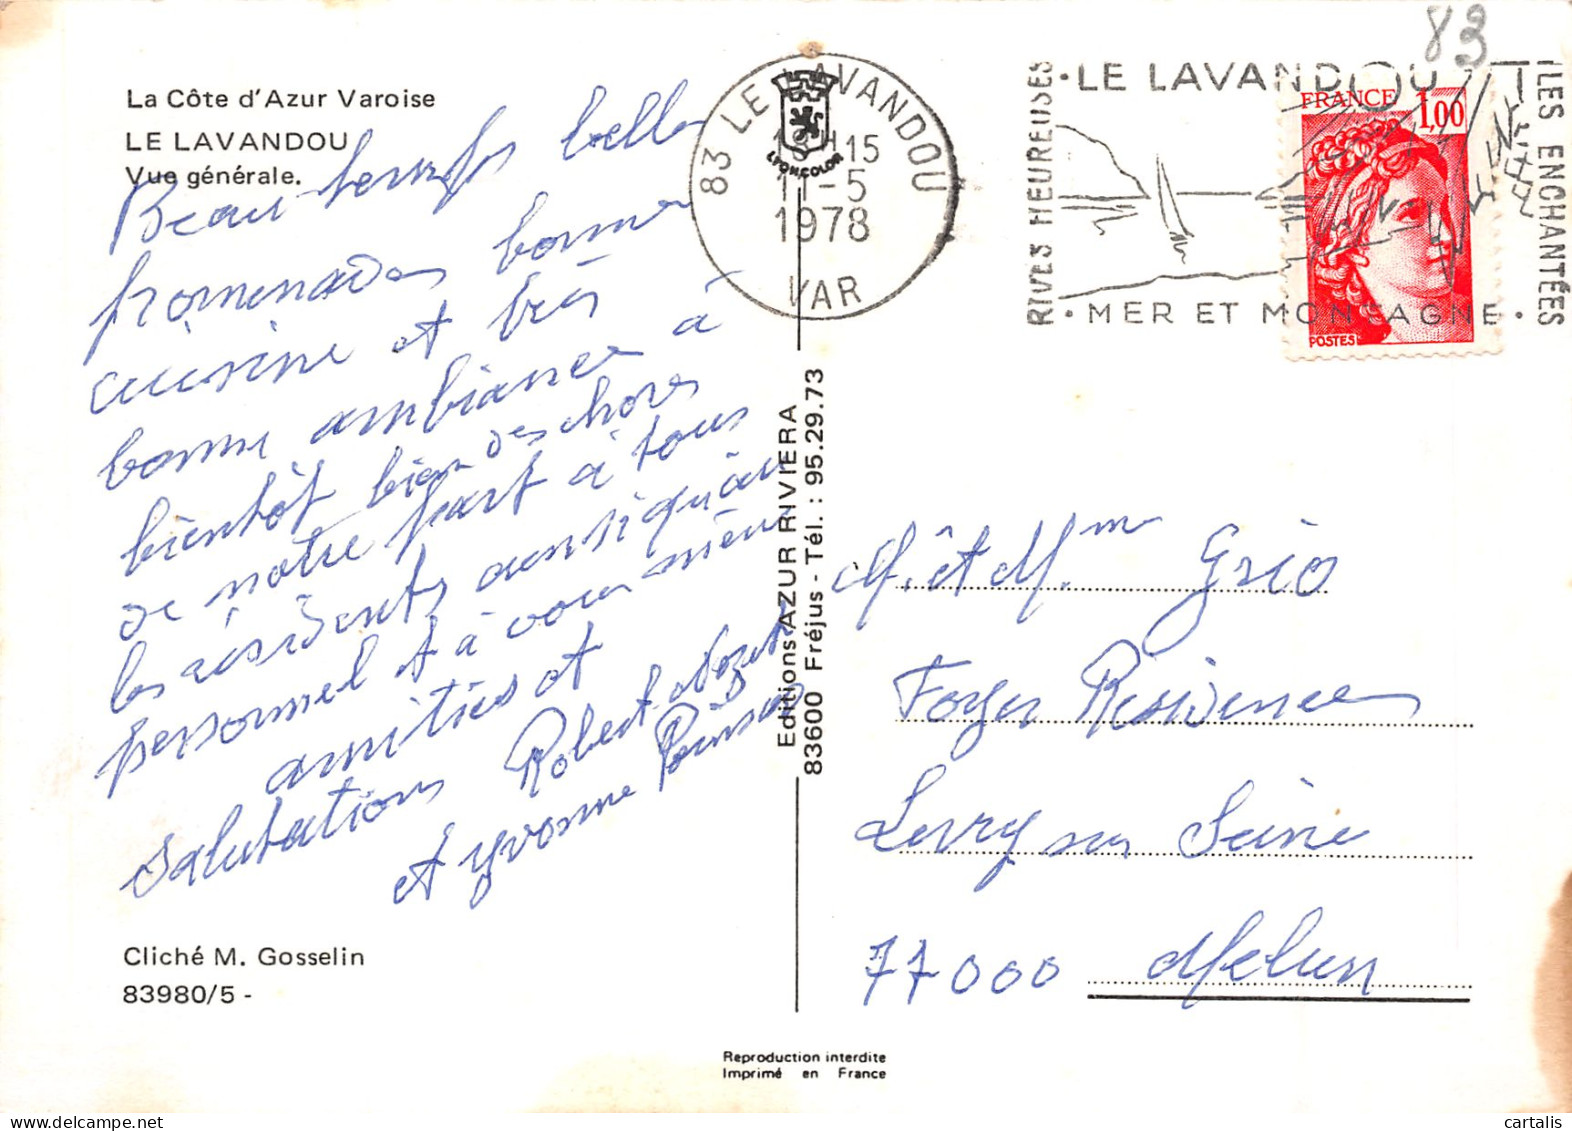 La Côte d'Azur Varoise
LE LAVANDOU
Vue générale.
Beau temps belles
promenades bonne
cuisine et très
bonne ambiance à
bientôt bien des choses
de notre part à tous
les résidents ainsi qu'au
personnel et à vous même
amitiés et
salutations Robert
et Yvonne
Cliché M. Gosselin
83980/5 -
83 LE LAVANDOU
15
11-5
1978
VAR
LYONCOLOR
Editions AZUR RIVIERA
83600 Fréjus - Tél. : 95.29.73
Reproduction interdite
Imprimé en France
83
RIVES HEUREUSES
• LE LAVANDOU
ILES ENCHANTÉES
• MER ET MONTAGNE •
FRANCE 1,00
POSTES
M. et Mme Grio
Foyer Résidence
Livry sur Seine
77000 Melun
cartalis
www.delcampe.net